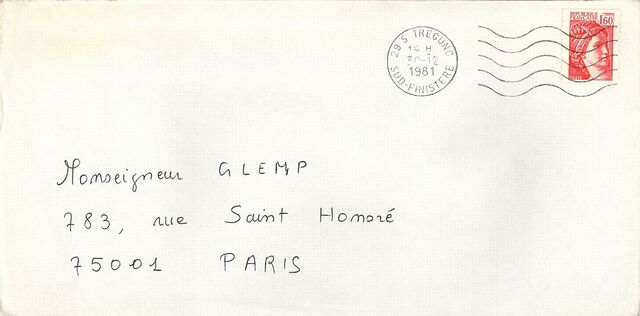 29 S TREGUNC
30-12
1981
SUD-FINISTERE
1,60
Monseigneur GLEMP
783, rue Saint Honoré
75001 PARIS